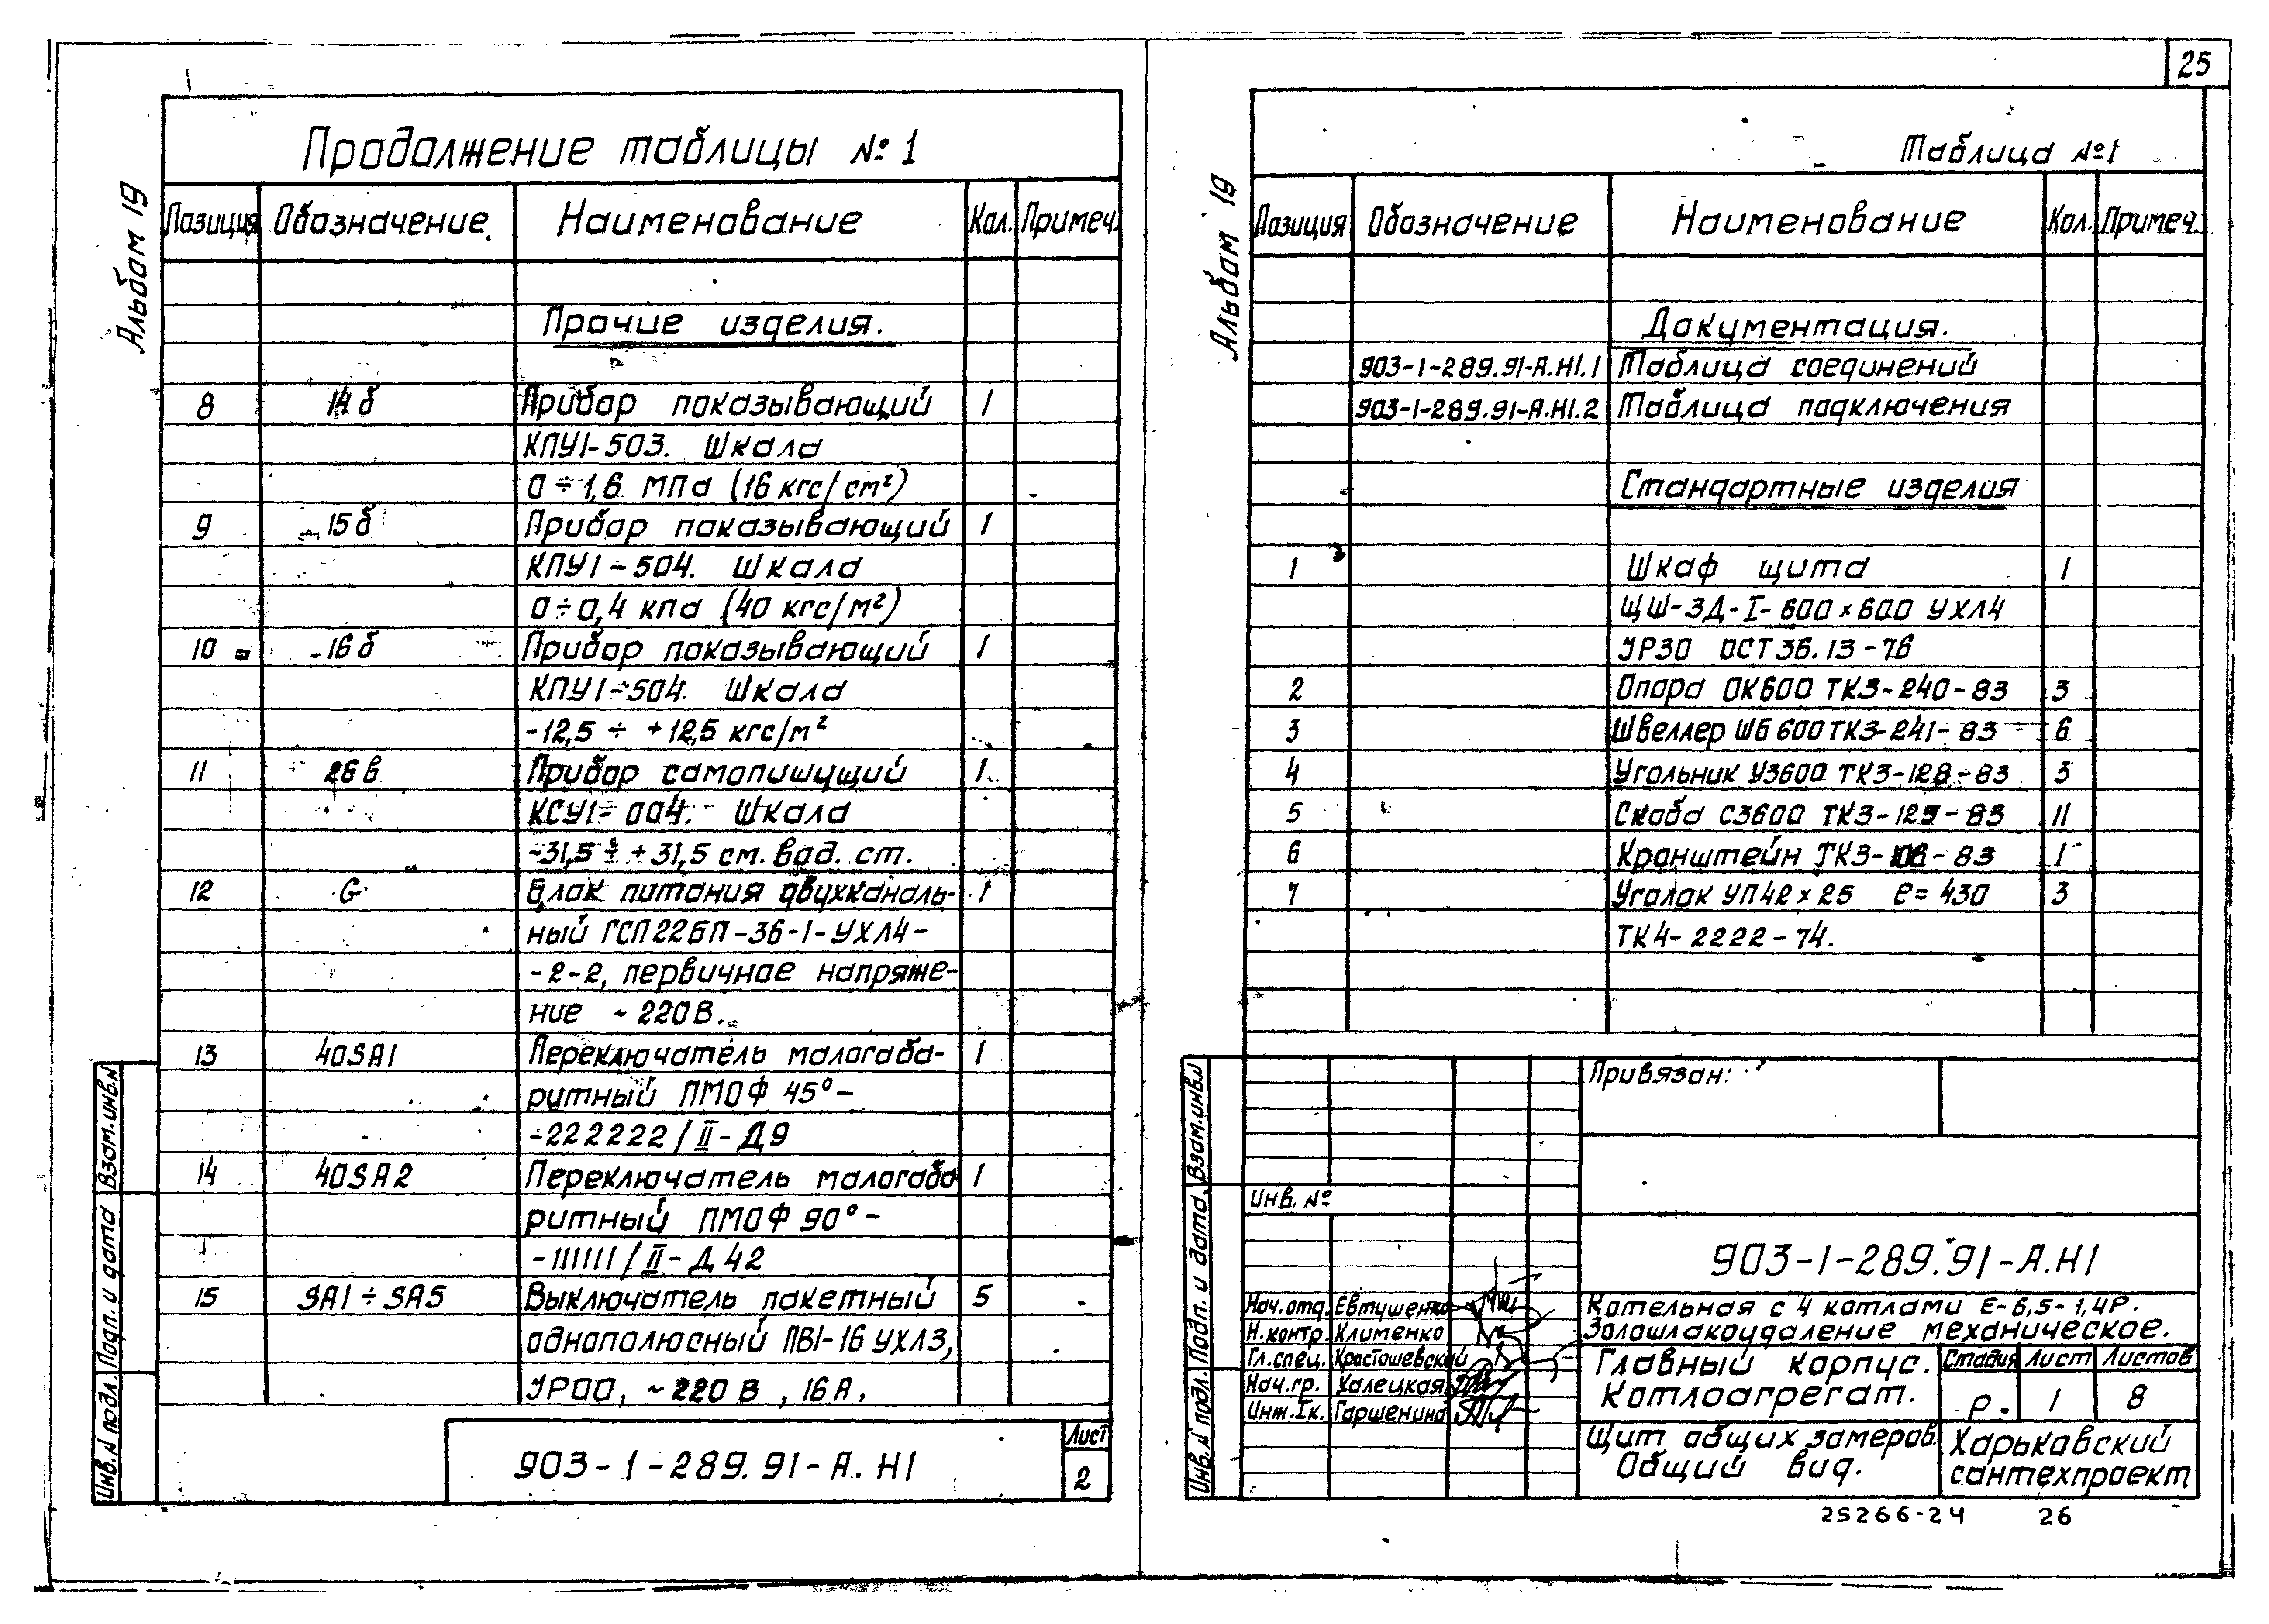 25
Альбом 19
Продолжение таблицы №1
Позиция Обозначение Наименование Кол. Примеч.
Прочие изделия.
8 14б Прибор показывающий 1
КПУ1-503. Шкала
0÷1,6 МПа (16 кгс/см²)
9 15б Прибор показывающий 1
КПУ1-504. Шкала
0÷0,4 кПа (40 кгс/м²)
10 16б Прибор показывающий 1
КПУ1-504. Шкала
-12,5 ÷ +12,5 кгс/м²
11 26в Прибор самопишущий 1
КСУ1-004. Шкала
-31,5 ÷ +31,5 см. вод. ст.
12 G Блок питания двухканаль- 1
ный ГСП 22БП-36-1-УХЛ4-
-2-2, первичное напряже-
ние ~220В.
13 40SA1 Переключатель малогаба- 1
ритный ПМОФ 45°-
-222222/II-Д9
14 40SA2 Переключатель малогаба 1
ритный ПМОФ 90°-
-111111/II-Д42
15 SA1÷SA5 Выключатель пакетный 5
однополюсный ПВ1-16 УХЛ3,
УР00, ~220 В, 16А,
Инв.№ подл. Подп. и дата Взам.инв.№
903-1-289.91-А.Н1
Лист
2
Альбом 19
Таблица №1
Позиция Обозначение Наименование Кол. Примеч.
Документация.
903-1-289.91-А.Н1.1 Таблица соединений
903-1-289.91-А.Н1.2 Таблица подключения
Стандартные изделия
1 Шкаф щита 1
ЩШ-ЗД-I-600×600 УХЛ4
УР30 ОСТ36.13-76
2 Опора ОК600 ТК3-240-83 3
3 Швеллер ШБ 600 ТК3-241-83 6
4 Угольник У3600 ТК3-128-83 3
5 Скоба С3600 ТК3-125-83 11
6 Кронштейн ТК3- -83 1
7 Уголок УП42×25 ℓ=430 3
ТК4-2222-74.
Инв.№ подл. Подп. и дата. Взам.инв.№
Привязан:
Инв. №
903-1-289.91-А.Н1
Нач.отд. Евтушенко
Н.контр. Клименко
Гл.спец. Кростошевский
Нач.гр. Халецкая
Инж.Iк. Гаршенина
Котельная с 4 котлами Е-6,5-1,4Р.
Золошлакоудаление механическое.
Главный корпус.
Котлоагрегат.
Стадия Лист Листов
Р. 1 8
Щит общих замеров.
Общий вид.
Харьковский
сантехпроект
25266-24 26